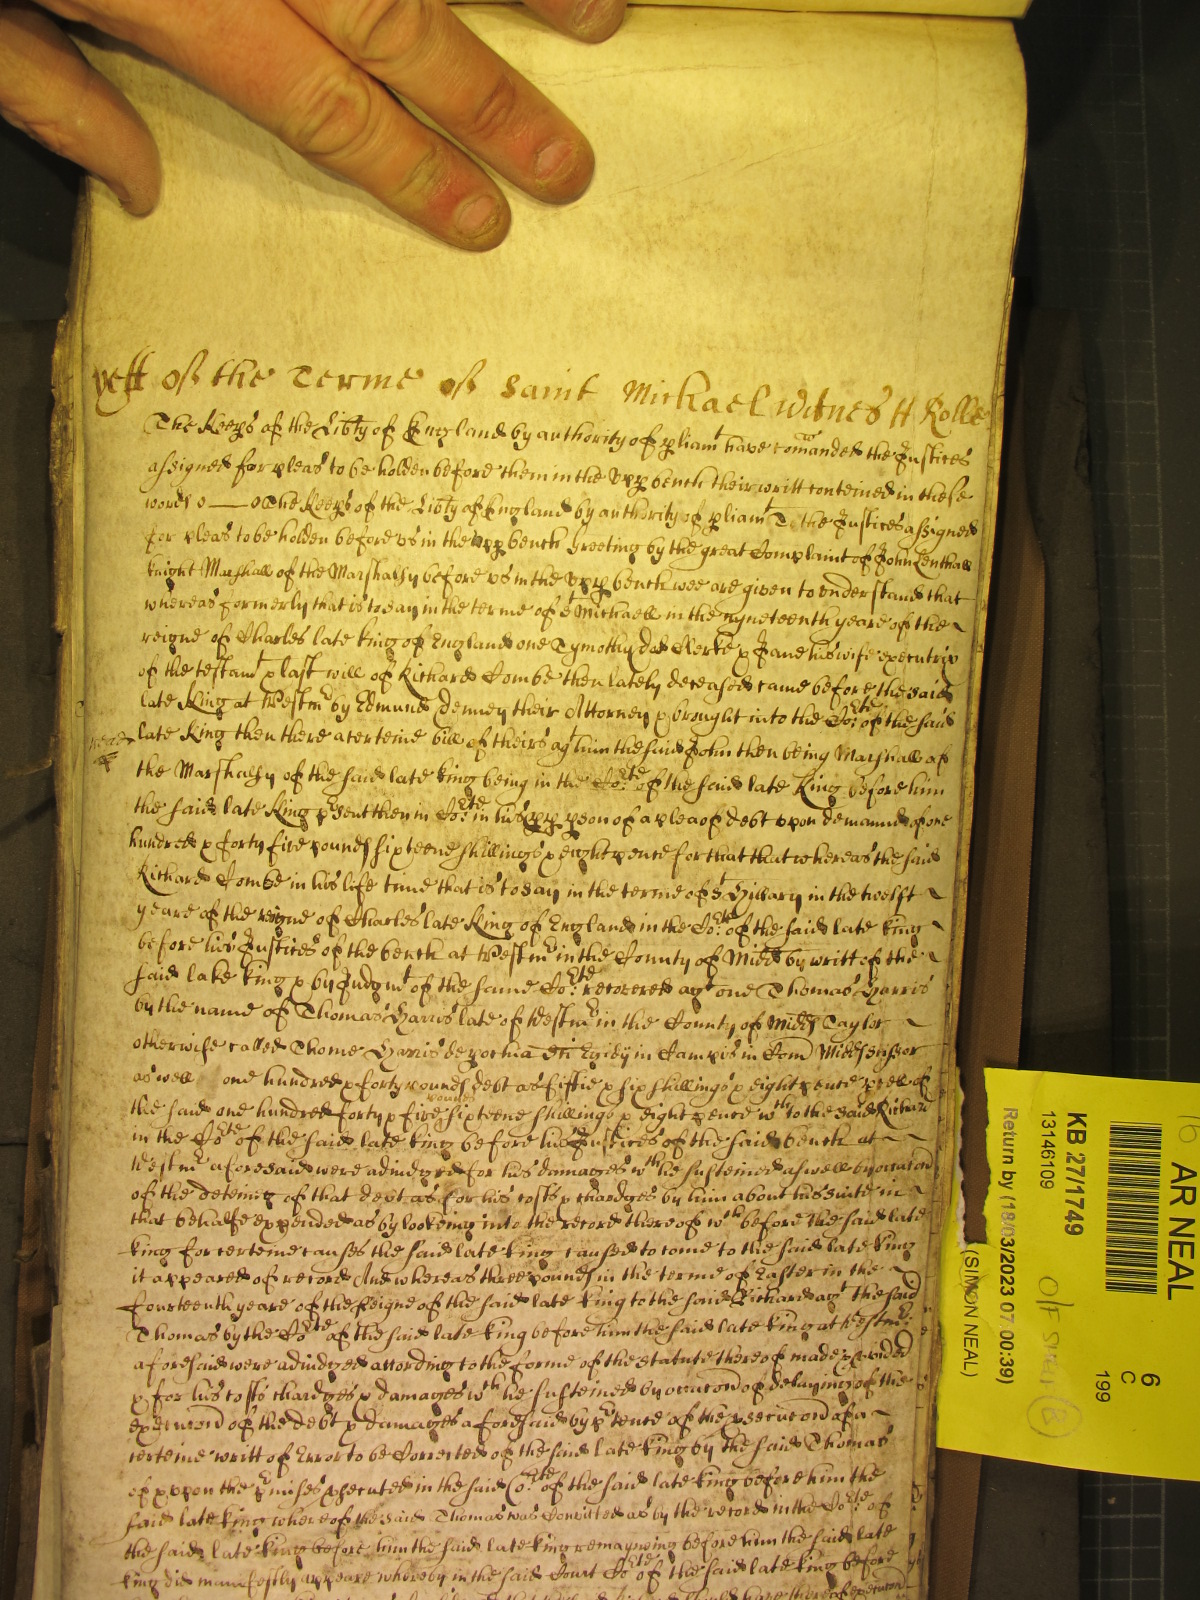 yett of the Terme of Saint Michael Witnes H Rolle
The Keeps of the Libty of England by authority of pliamt have comanded the Justices
assigned for pleas to be holden before them in the upp bench their writt conteined in these
words o——o The Keeps of the Libty of England by authority of pliamt To the Justices assigned
for pleas to be holden before us in the upp bench Greeting by the great Complaint of John Lenthall
knight Marshall of the Marshalsy before us in the upp bench wee are given to understand that
whereas formerly that is to say in the terme of St Michaell in the nyneteenth yeare of the
reigne of Charles late king of England one Tymothy Clerke & Jane his wife executrix
of the testamt & last will of Richard Combe then lately deceased came before the said
late King at Westmr by Edmund Denney their Attorney & brought into the Cort of the said
late King then there a certeine bill of theirs agt him the said John then being Marshall of
the Marshalsy of the said late king being in the Corte of the said late King before him
the said late King psent then in Corte in his pp pson of a plea of debt upon demaund of one
hundred & forty five pounds sixteene shillings & eight pence for that that whereas the said
Richard Combe in his life time that is to say in the terme of St Hillary in the twelft
yeare of the reigne of Charles late King of England in the Corte of the said late king
before his Justices of the bench at Westmr in the County of Midd by writt of the
said late king & by Judgmt of the same Corte recovered agt one Thomas Harris
by the name of Thomas Harris late of Westmr in the County of Midd Taylor
otherwise called Thome Harris de pochia Sti Egidij in Campis in Com Midd
as well one hundred & forty pounds debt as fiftie & six shillings & eight pence pcell of
pounds
the said one hundred forty & five sixteene shillings & eight pence wch to the said Richard
in the Corte of the said late king before his Justices of the said bench at
Westmr aforesaid were adiudged for his damages wch he susteined aswell by occacon
of the deteining of that debt as for his costs & chardges by him about his suite in
that behalfe expended as by lookeing into the record thereof wch before the said late
king for certeine causes the said late king caused to come to the said late king
it appeared of record And whereas three pounds in the terme of Easter in the
fourteenth yeare of the Reigne of the said late king to the said Richard agt the said
Thomas by the Corte of the said late king before him the said late king at Westmr
aforesaid were adiudged according to the forme of the statute thereof made & pvided
& for his costs chardges & damages wch he susteined by occacon of delaying of the
execucon of the debt & damages aforesaid by ptence of the psecucon of a
certeine writt of Error to be Corrected of the said late king by the said Thomas
of & upon the pmises psecuted in the said Corte of the said late king before him the
said late king whereof the said Thomas was Convicted as by the record in the Corte of
the said late king before him the said late king remayneing before him the said late
king did manifestly appeare whereby in the said Court Corte of the said late king before
6 AR NEAL
C
199
KB 27/1749
13146109
Return by (18/03/2023 07:00:39)
(SIMON NEAL)